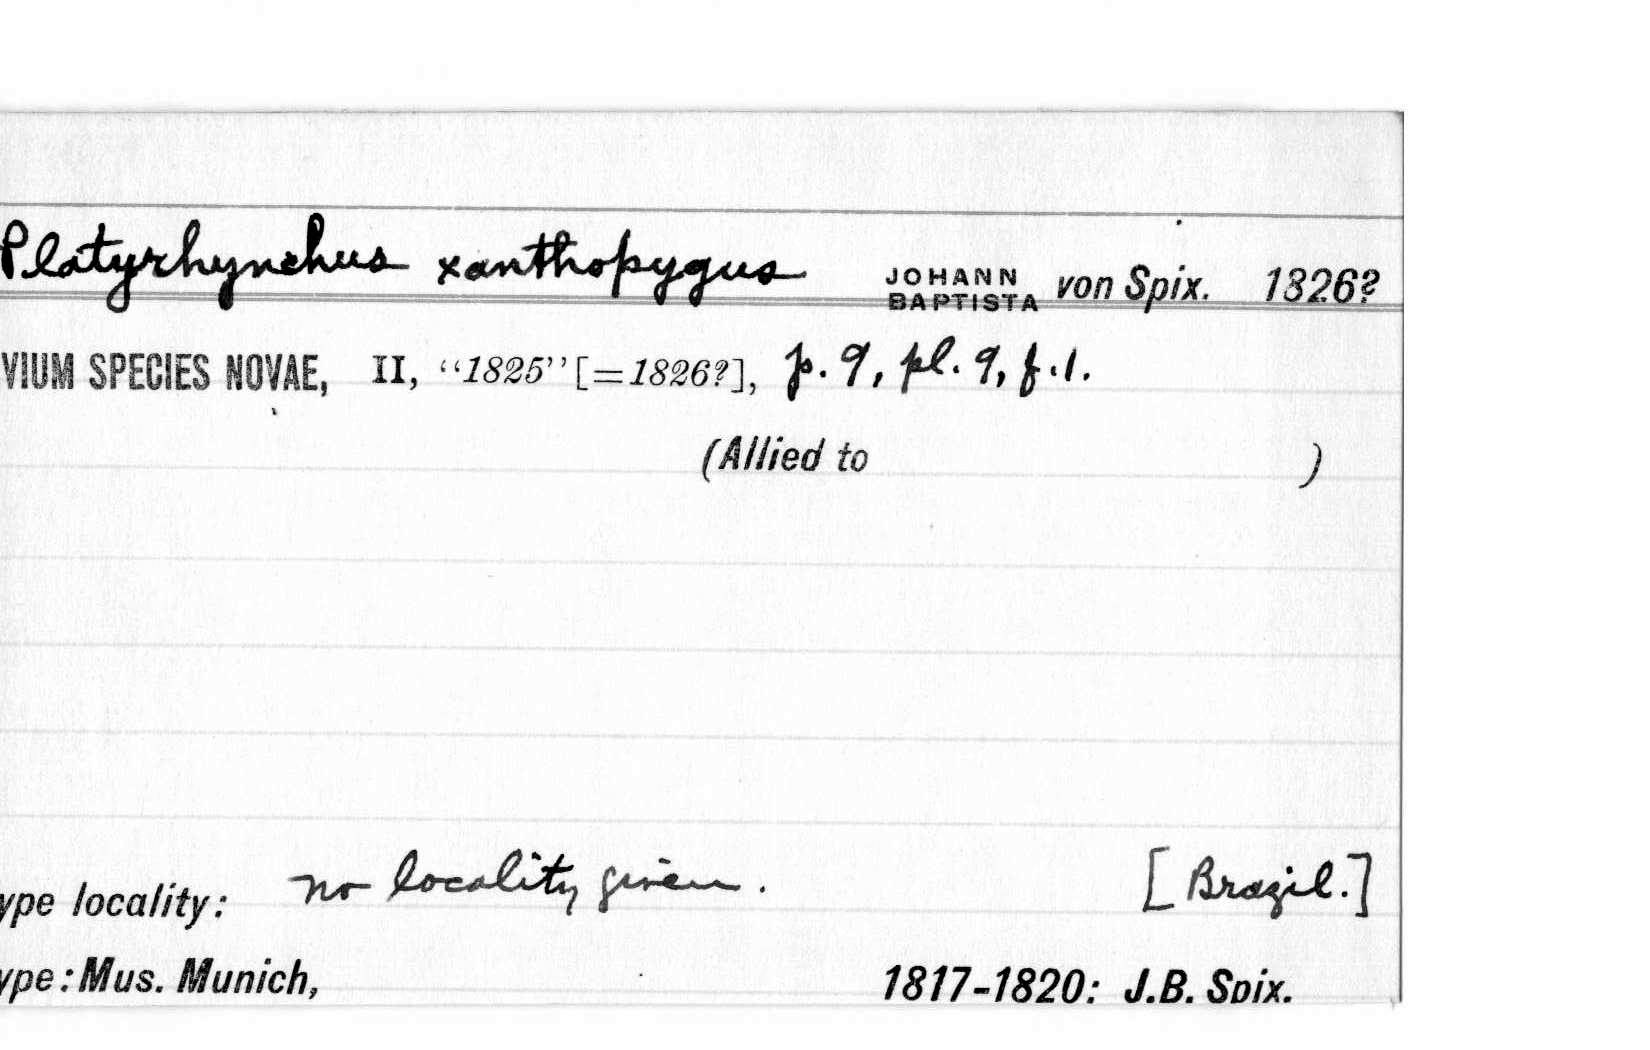 Platyrhynchus xanthopygus JOHANN BAPTISTA von Spix. 1826?
VIUM SPECIES NOVAE, II, “1825” [=1826?], p. 9, pl. 9, f.1.
(Allied to )
ype locality: no locality given. [Brazil.]
ype: Mus. Munich, 1817-1820: J.B. Spix.